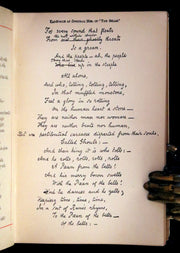 Facsimile of Original MS. of "The Bells"
For every sound that floats
From
Is a groan.
And the people — ah, the people
up in the steeple
All alone,
And who, tolling, tolling, tolling,
In that muffled monotone,
Feel a glory in so rolling
On the human heart a stone —
They are neither man nor woman,
They are neither brute nor human,
But are pestilential carcases departed from their souls,
Called Ghouls: —
And their king it is who tolls: —
And he rolls, rolls, rolls, rolls
A Paean from the bells!
And his merry bosom swells
With the Paean of the bells!
And he dances and he yells;
Keeping time, time, time,
In a sort of Runic rhyme,
To the Paean of the bells —
Of the bells: —